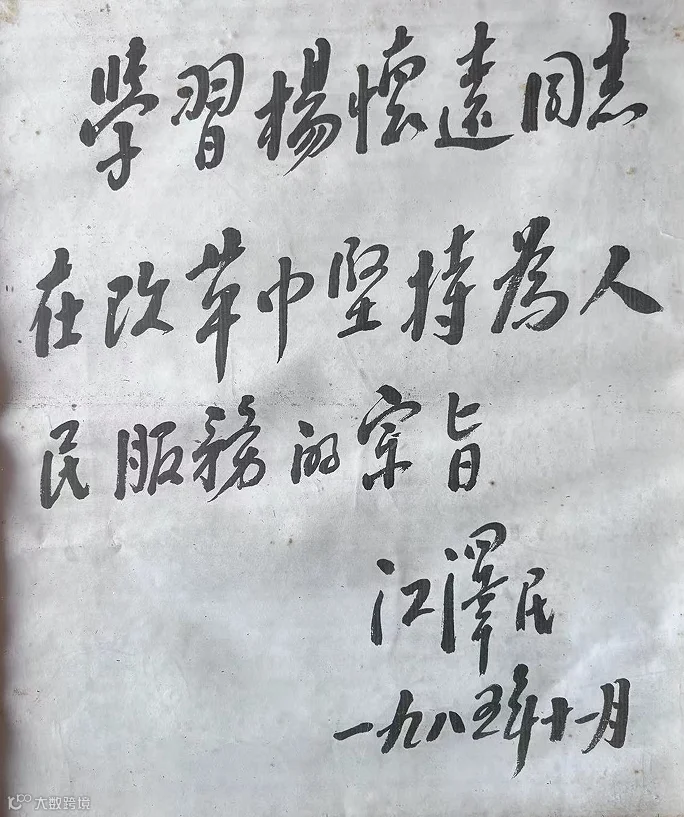 學習楊懷遠同志
在改革中堅持為人
民服務的宗旨
江澤民
一九八五年十一月
大数跨境